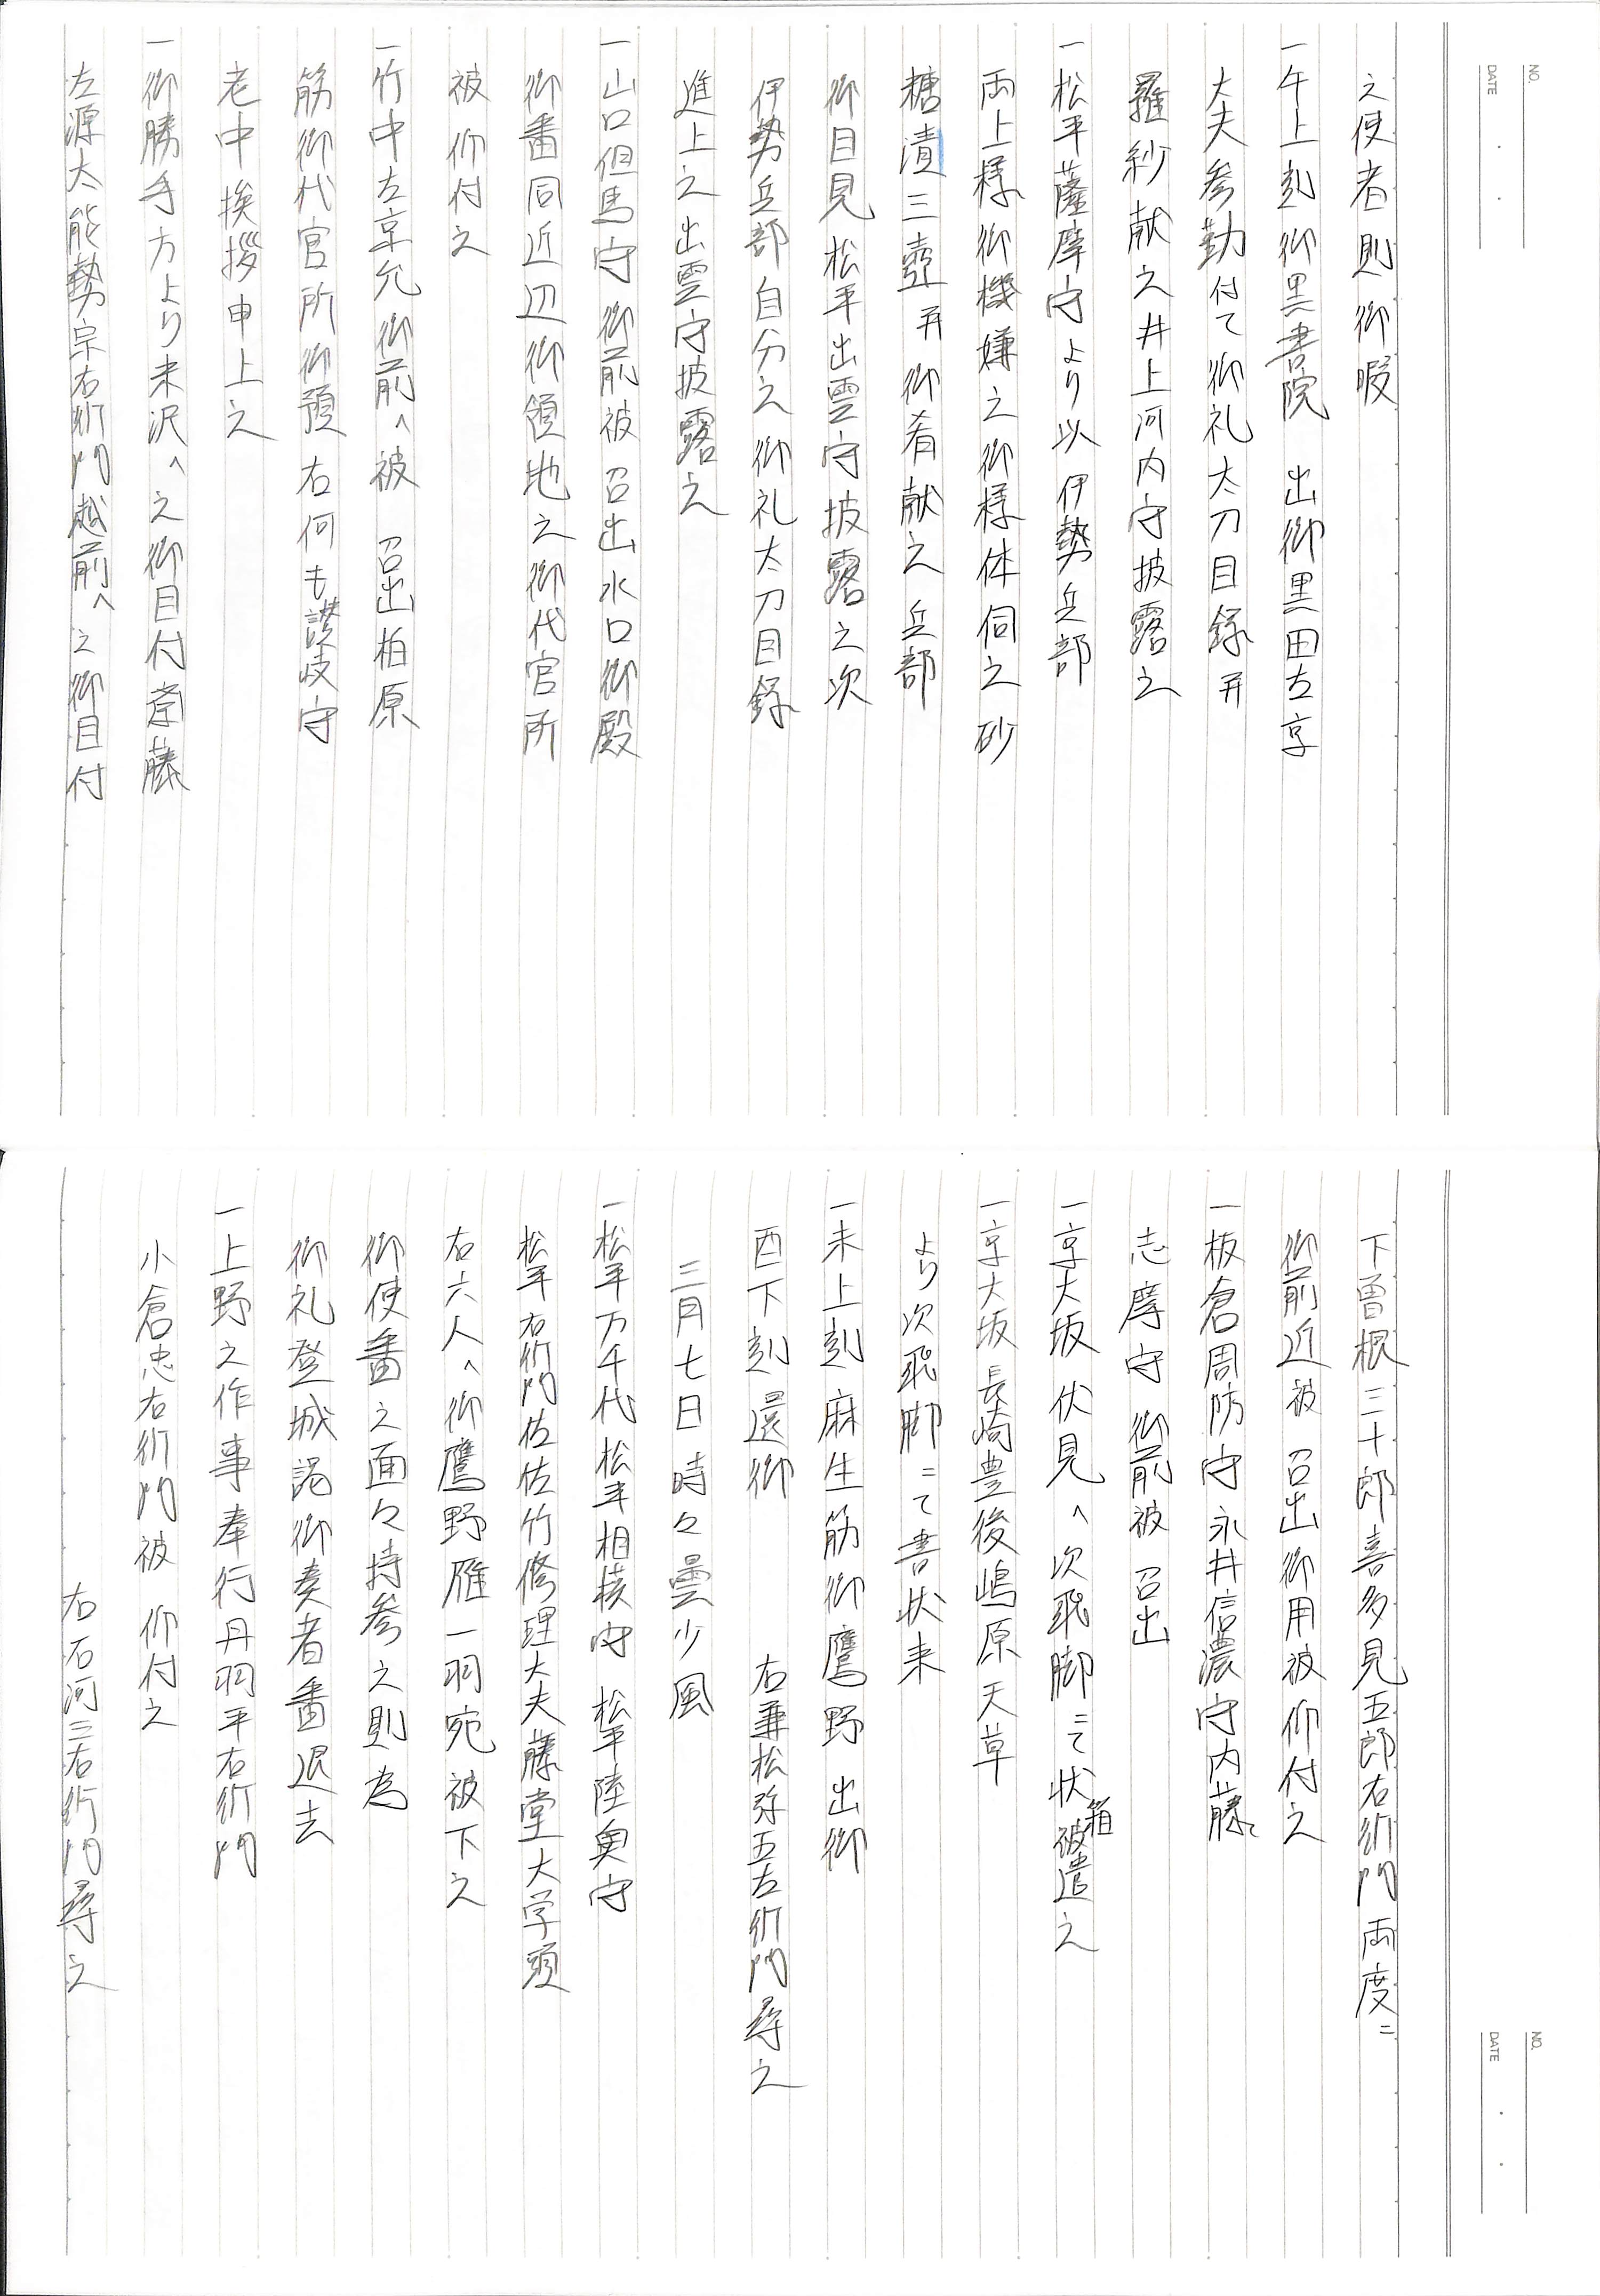 之使者則御暇
一午上刻御黒書院 出御黒田左京
大夫参勤付て御礼太刀目録并
羅紗献之井上河内守披露之
一松平薩摩守より以伊勢兵部
両上様御機嫌之御様体伺之砂
糖漬三壺并御肴献之兵部
御目見松平出雲守披露之次
伊勢兵部自分之御礼太刀目録
進上之出雲守披露之
一山口但馬守御前被 召出水口御殿
御番同近辺御領地之御代官所
被 仰付之
一竹中左京允御前へ被 召出柏原
筋御代官所御預右何も讃岐守
老中挨拶申上之
一御勝手方より米沢へ之御目付斎藤
左源太能勢宗右衛門越前へ之御目付
下曽根三十郎喜多見五郎右衛門両度ニ
御前近被 召出御用被 仰付之
一板倉周防守永井信濃守内藤
志摩守 御前被 召出
一京大坂伏見へ次飛脚ニて状箱被遣之
一京大坂長崎豊後嶋原天草
より次飛脚ニて書状来
一未上刻麻生筋御鷹野 出御
酉下刻還御 右兼松弥五左衛門尋之
三月七日時々曇少風
一松平万千代松平相模守 松平陸奥守
松平右衛門佐佐竹修理大夫藤堂大学頭
右六人へ御鷹野雁一羽宛被下之
御使番之面々持参之則為
御礼登城謁御奏者番退去
一上野之作事奉行丹羽平右衛門
小倉忠右衛門被 仰付之
右石河三右衛門尋之
NO.
DATE
NO.
DATE